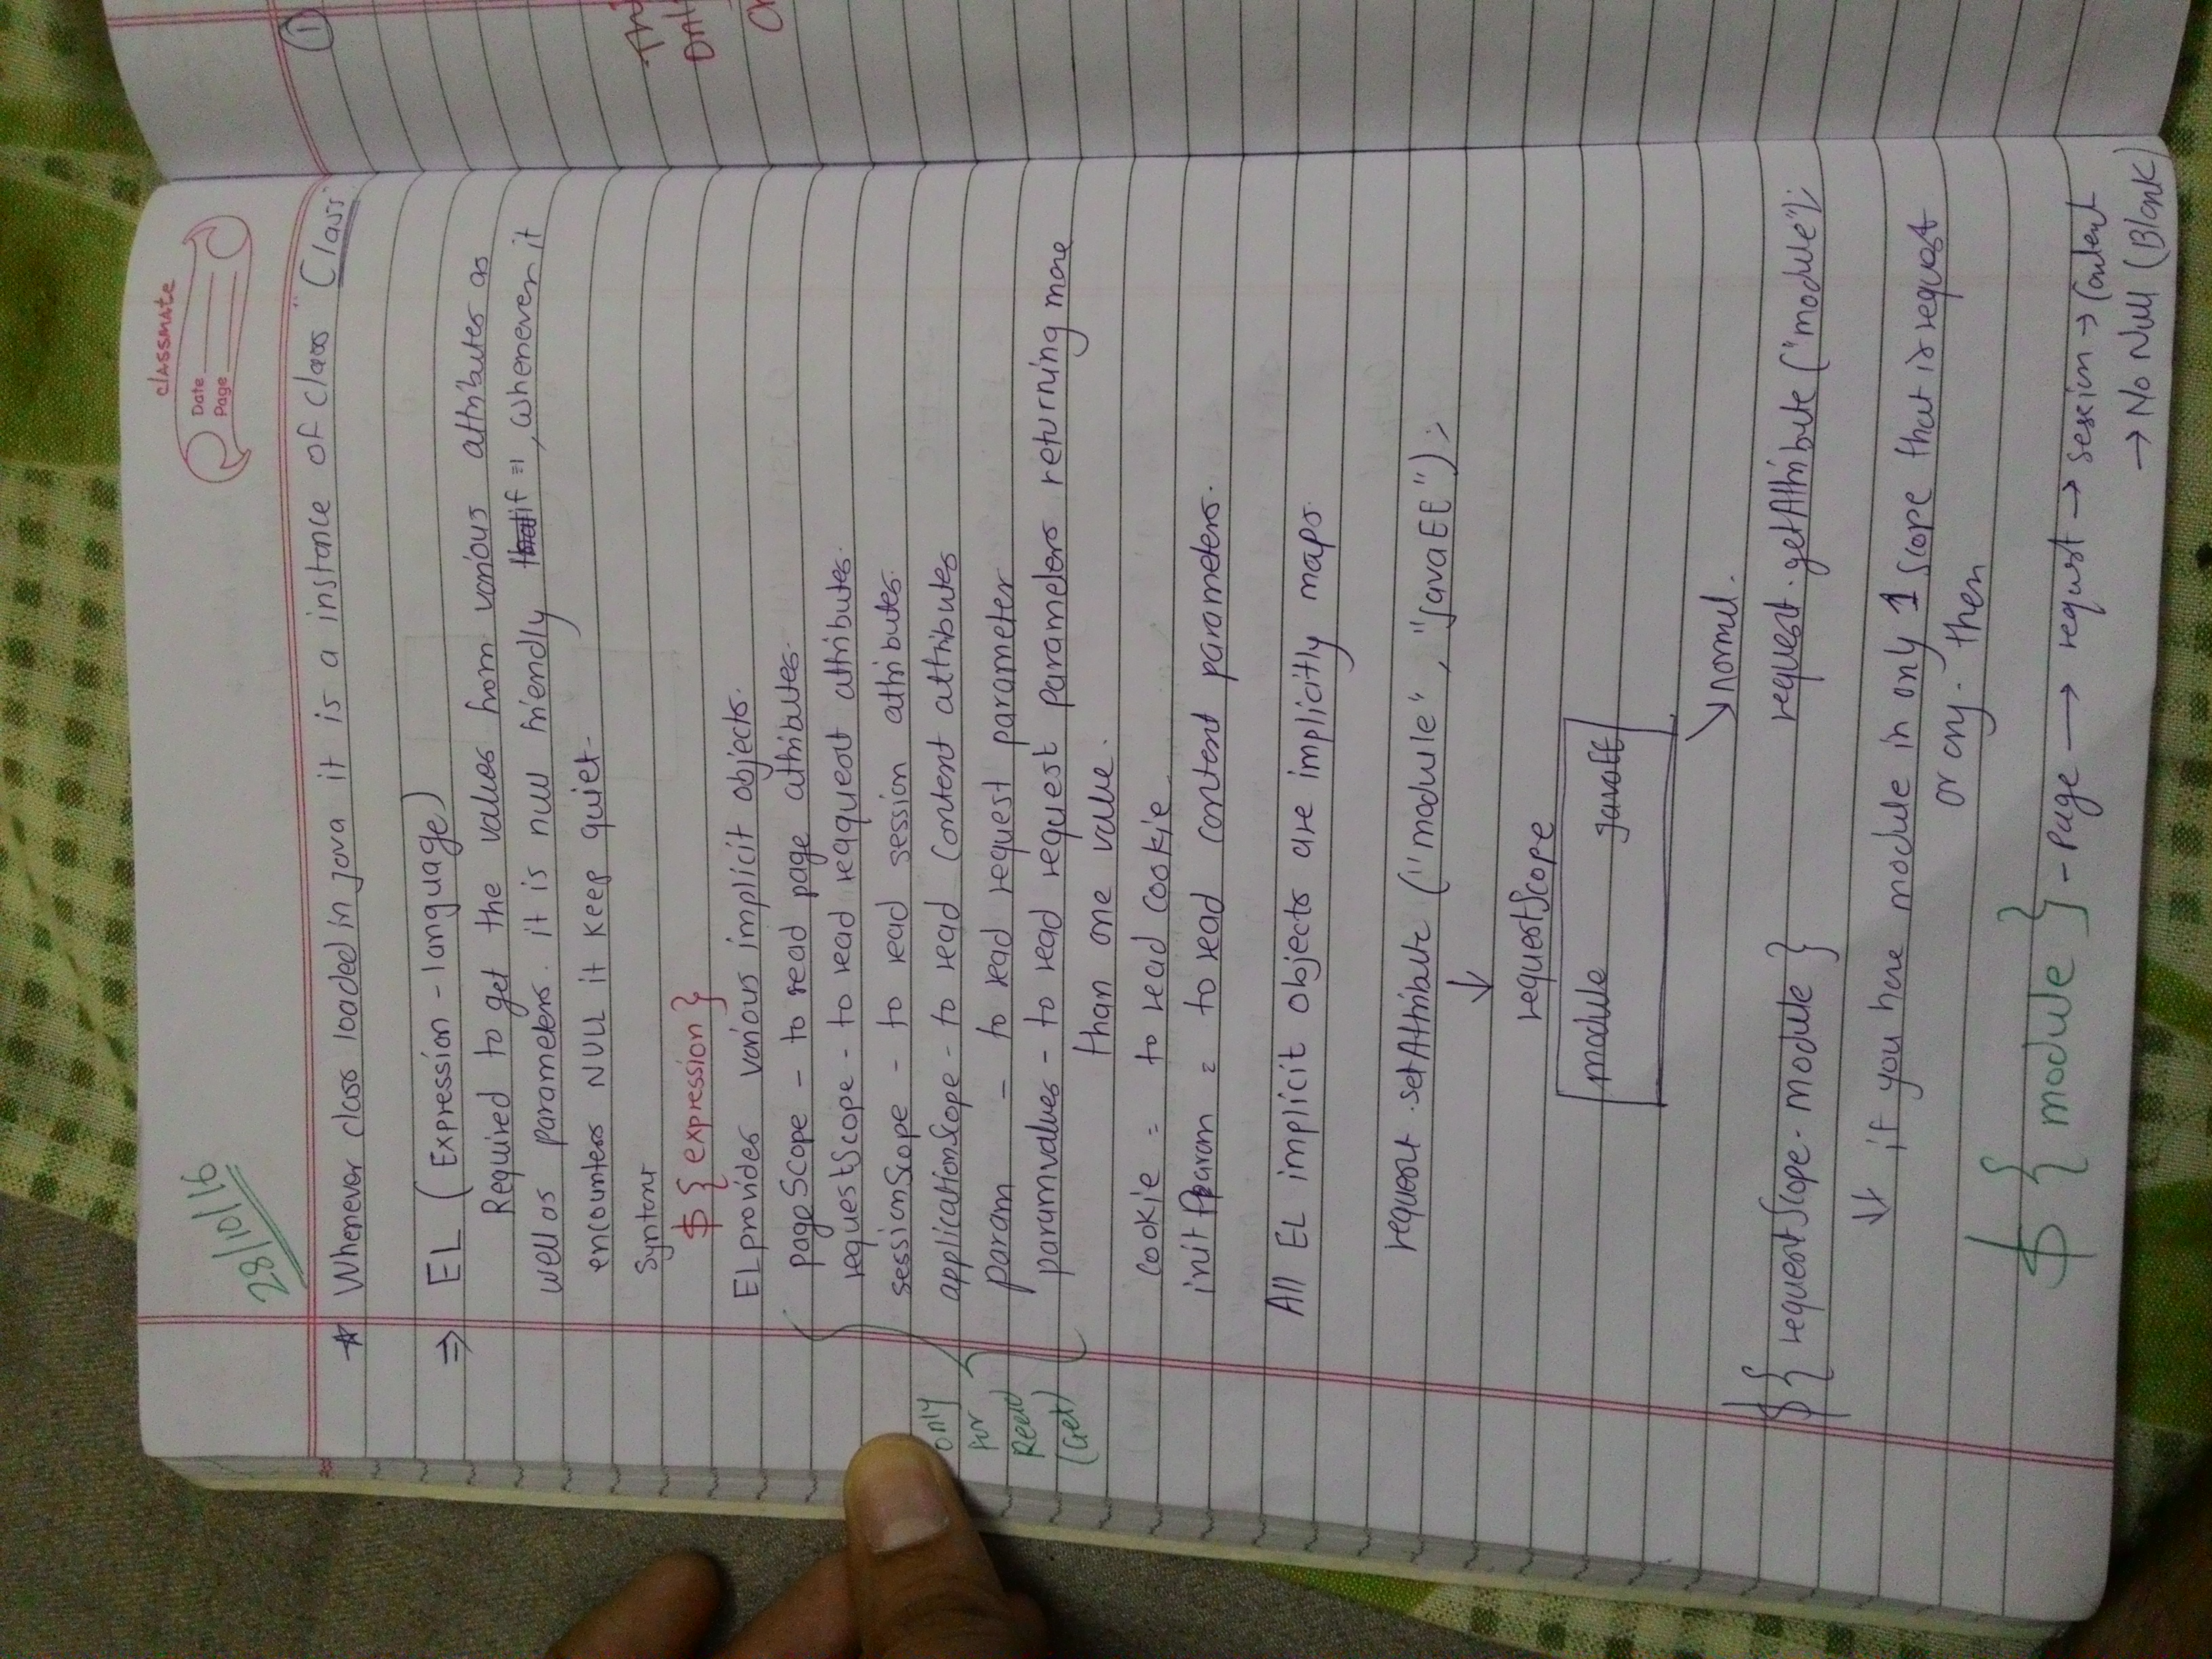 classmate
Date
Page
28/10/16
☆ Whenever class loaded in java it is a instance of class "Class"
⇒ EL (Expression - language)
Required to get the values from various attributes as
well as parameters. it is null friendly if , whenever it
encounters NULL it keep quiet.
Syntax
${expression}
EL provides various implicit objects.
pageScope - to read page attributes.
requestScope - to read reaquest attributes.
sessionScope - to read session attributes.
applicationScope - to read Context attributes
param - to read request parameter
paramvalues - to read request parameters returning more
than one value.
cookie = to read cookie.
initParam = to read context parameters.
only
for
Read
(Get)
All EL implicit objects are implicitly maps.
request.setAttribute ("module", "JavaEE");
↓
requestScope
module JavaEE
↘ normal.
${requestScope.module} request.getAttribute ("module");
⇓ if you have module in only 1 scope that is request
or any. then
${module} - Page → requst → session → Context
→ No Null (Blank)
①
Th
Onl